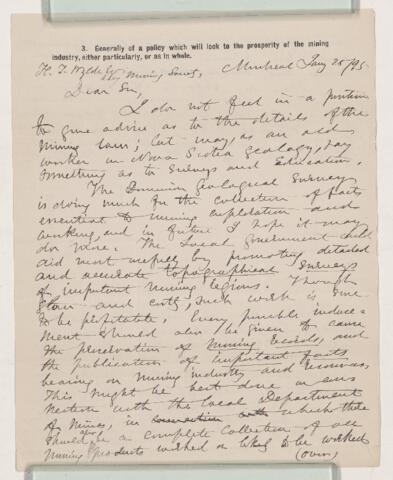 3. Generally of a policy which will look to the prosperity of the mining
industry, either particularly, or as in whole.
H. T. Wylde Esq Mining Socy, Montreal Jany 25/95
Dear Sir,
I do not feel in a position
to give advice as to the details of the
Mining laws; but may, as an old
worker in Nova Scotia Geology, say
something as to Surveys and Education.
The Dominion Geological Survey
is doing much for the collection of facts
essential to mining exploration and
working, and in future I hope it may
do more. The Local Government could
aid most usefully by promoting detailed
and accurate topographical surveys
of important mining regions. Though
slow and costly, such work is sure
to be profitable. Every possible induce-
ment should also be given to cause
the preservation of mining records, and
the publication of important facts
bearing on mining industry and resources.
This might be best done in con-
nection with the local Department
of Mines, in connection with which there
should also be a complete collection of all
mining products worked or likely to be worked
(over)